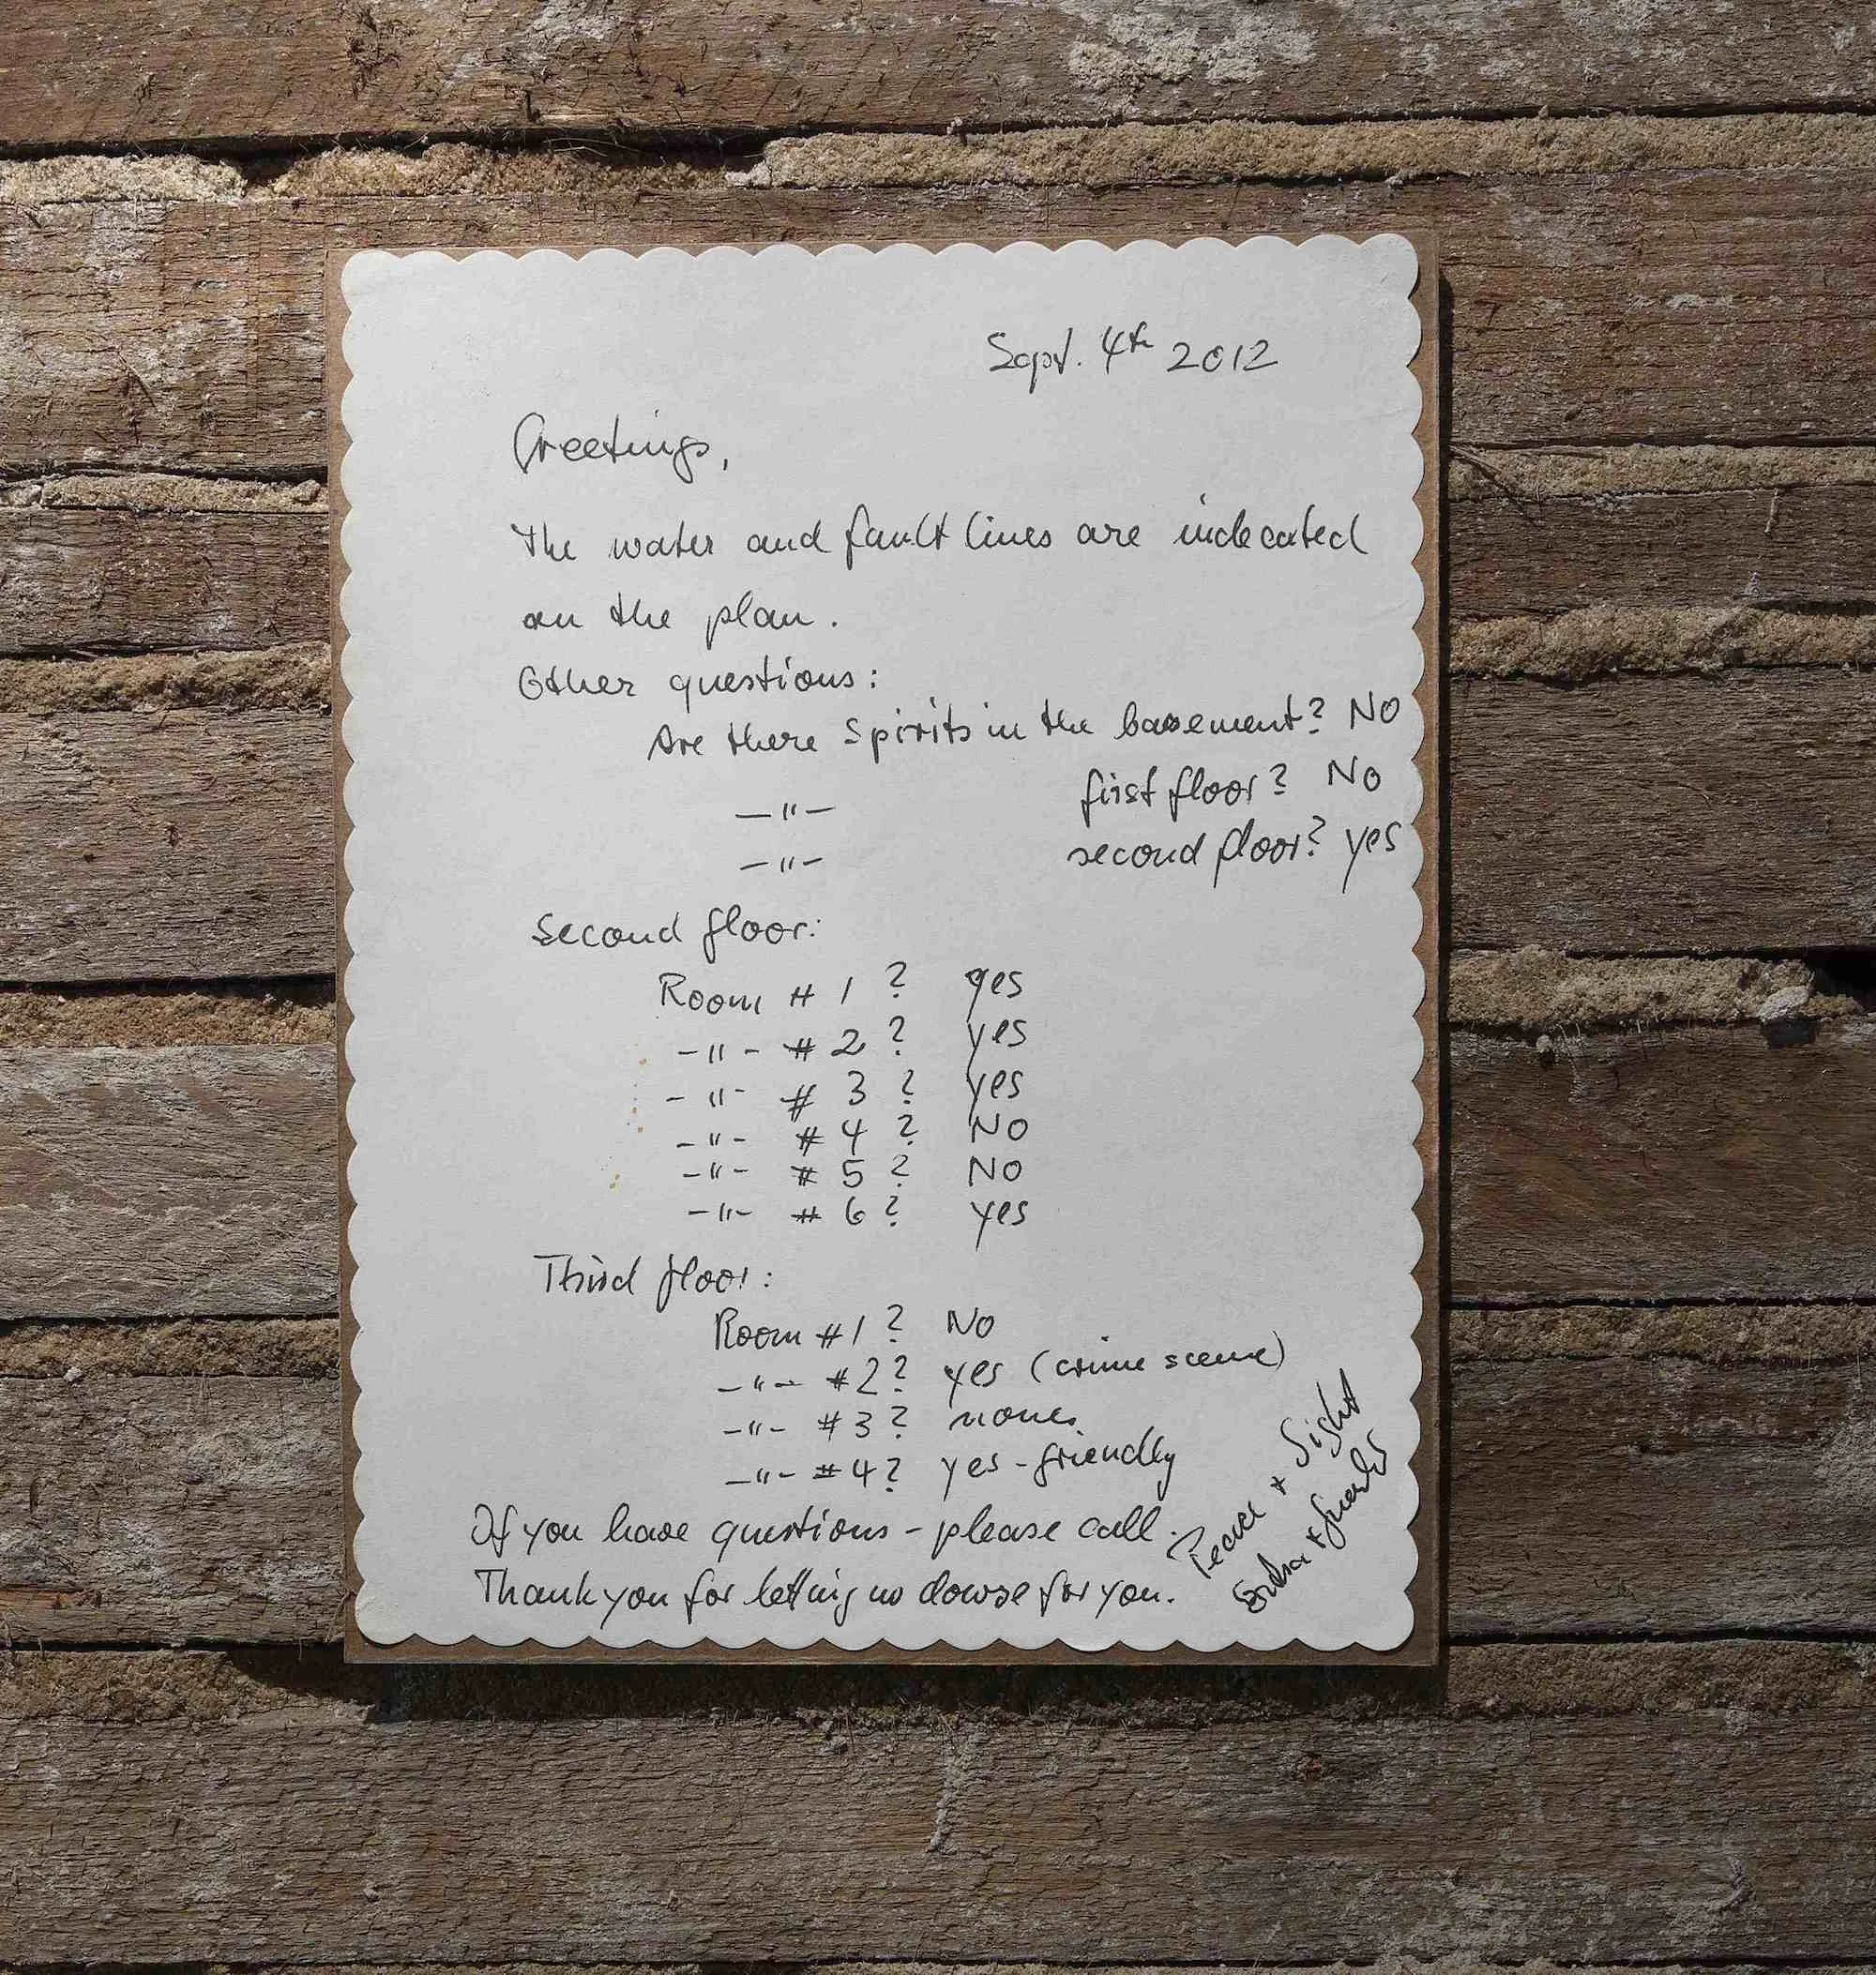 Sept. 4th 2012
Greetings,
The water and fault lines are indecated
on the plan.
Other questions:
Are there Spirits in the basement? NO
—"— first floor? No
—"— second floor? yes
Second floor:
Room # 1 ? yes
—"— # 2 ? yes
—"— # 3 ? yes
—"— # 4 ? NO
—"— # 5 ? NO
—"— # 6 ? yes
Third floor:
Room #1 ? No
—"— #2 ? yes (crime scene)
—"— #3 ? none
—"— #4 ? yes - friendly
If you have questions - please call.
Thank you for letting us dowse for you.
Peace +